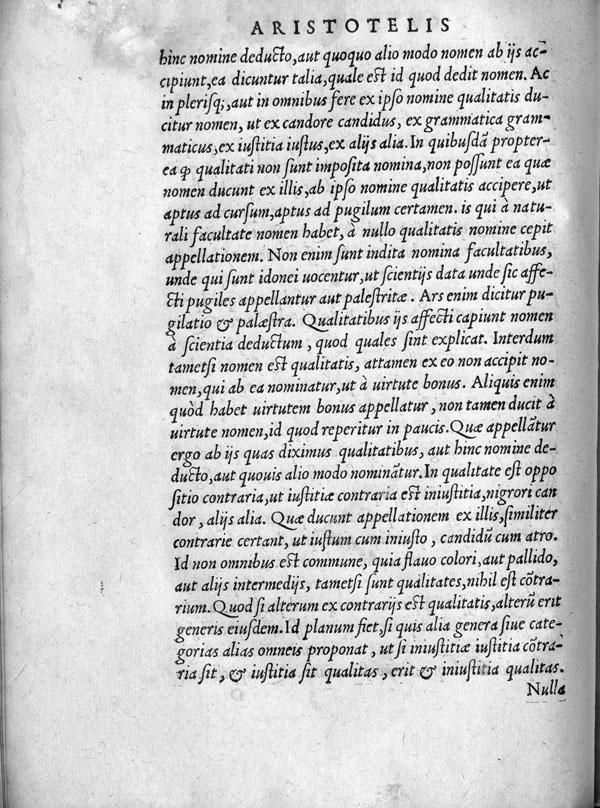 ARISTOTELIS
hinc nomine deducto, aut quoquo alio modo nomen ab ijs ac-
cipiunt, ea dicuntur talia, quale est id quod dedit nomen. Ac
in plerisq;, aut in omnibus fere ex ipso nomine qualitatis du-
citur nomen, ut ex candore candidus, ex grammatica gram-
maticus, ex iustitia iustus, ex alijs alia. In quibusdã propter-
ea ꝙ qualitati non sunt imposita nomina, non possunt ea quæ
nomen ducunt ex illis, ab ipso nomine qualitatis accipere, ut
aptus ad cursum, aptus ad pugilum certamen. is qui à natu-
rali facultate nomen habet, à nullo qualitatis nomine cepit
appellationem. Non enim sunt indita nomina facultatibus,
unde qui sunt idonei uocentur, ut scientijs data unde sic affe-
cti pugiles appellantur aut palestritæ. Ars enim dicitur pu-
gilatio & palæstra. Qualitatibus ijs affecti capiunt nomen
à scientia deductum, quod quales sint explicat. Interdum
tametsi nomen est qualitatis, attamen ex eo non accipit no-
men, qui ab ea nominatur, ut à uirtute bonus. Aliquis enim
quòd habet uirtutem bonus appellatur, non tamen ducit à
uirtute nomen, id quod reperitur in paucis. Quæ appellãtur
ergo ab ijs quas diximus qualitatibus, aut hinc nomine de-
ducto, aut quouis alio modo nominãtur. In qualitate est oppo
sitio contraria, ut iustitiæ contraria est iniustitia, nigrori can
dor, alijs alia. Quæ ducunt appellationem ex illis, similiter
contrarie certant, ut iustum cum iniusto, candidũ cum atro.
Id non omnibus est commune, quia flauo colori, aut pallido,
aut alijs intermedijs, tametsi sunt qualitates, nihil est cõtra-
rium. Quod si alterum ex contrarijs est qualitatis, alterũ erit
generis eiusdem. Id planum fiet, si quis alia genera siue cate-
gorias alias omneis proponat, ut si iniustitiæ iustitia cõtra-
ria sit, & iustitia sit qualitas, erit & iniustitia qualitas.
Nulla